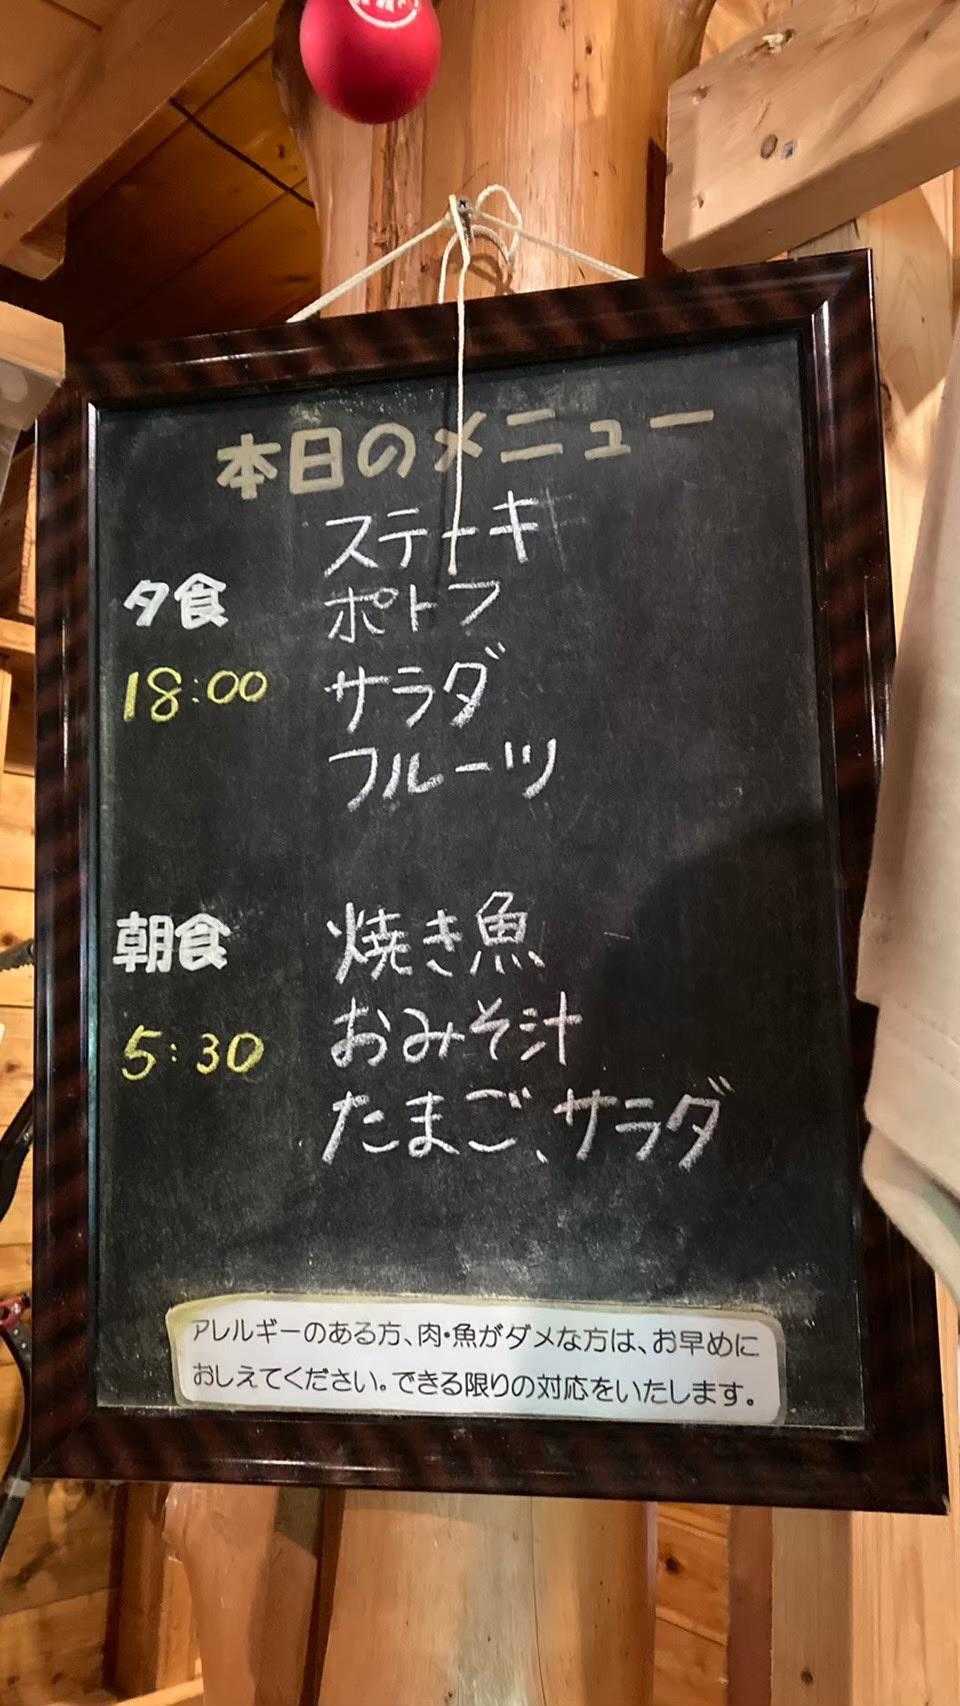 本日のメニュー
ステーキ
夕食
ポトフ
18:00
サラダ
フルーツ
朝食
焼き魚
5:30
おみそ汁
たまご、サラダ
アレルギーのある方、肉・魚がダメな方は、お早めに
おしえてください。できる限りの対応をいたします。